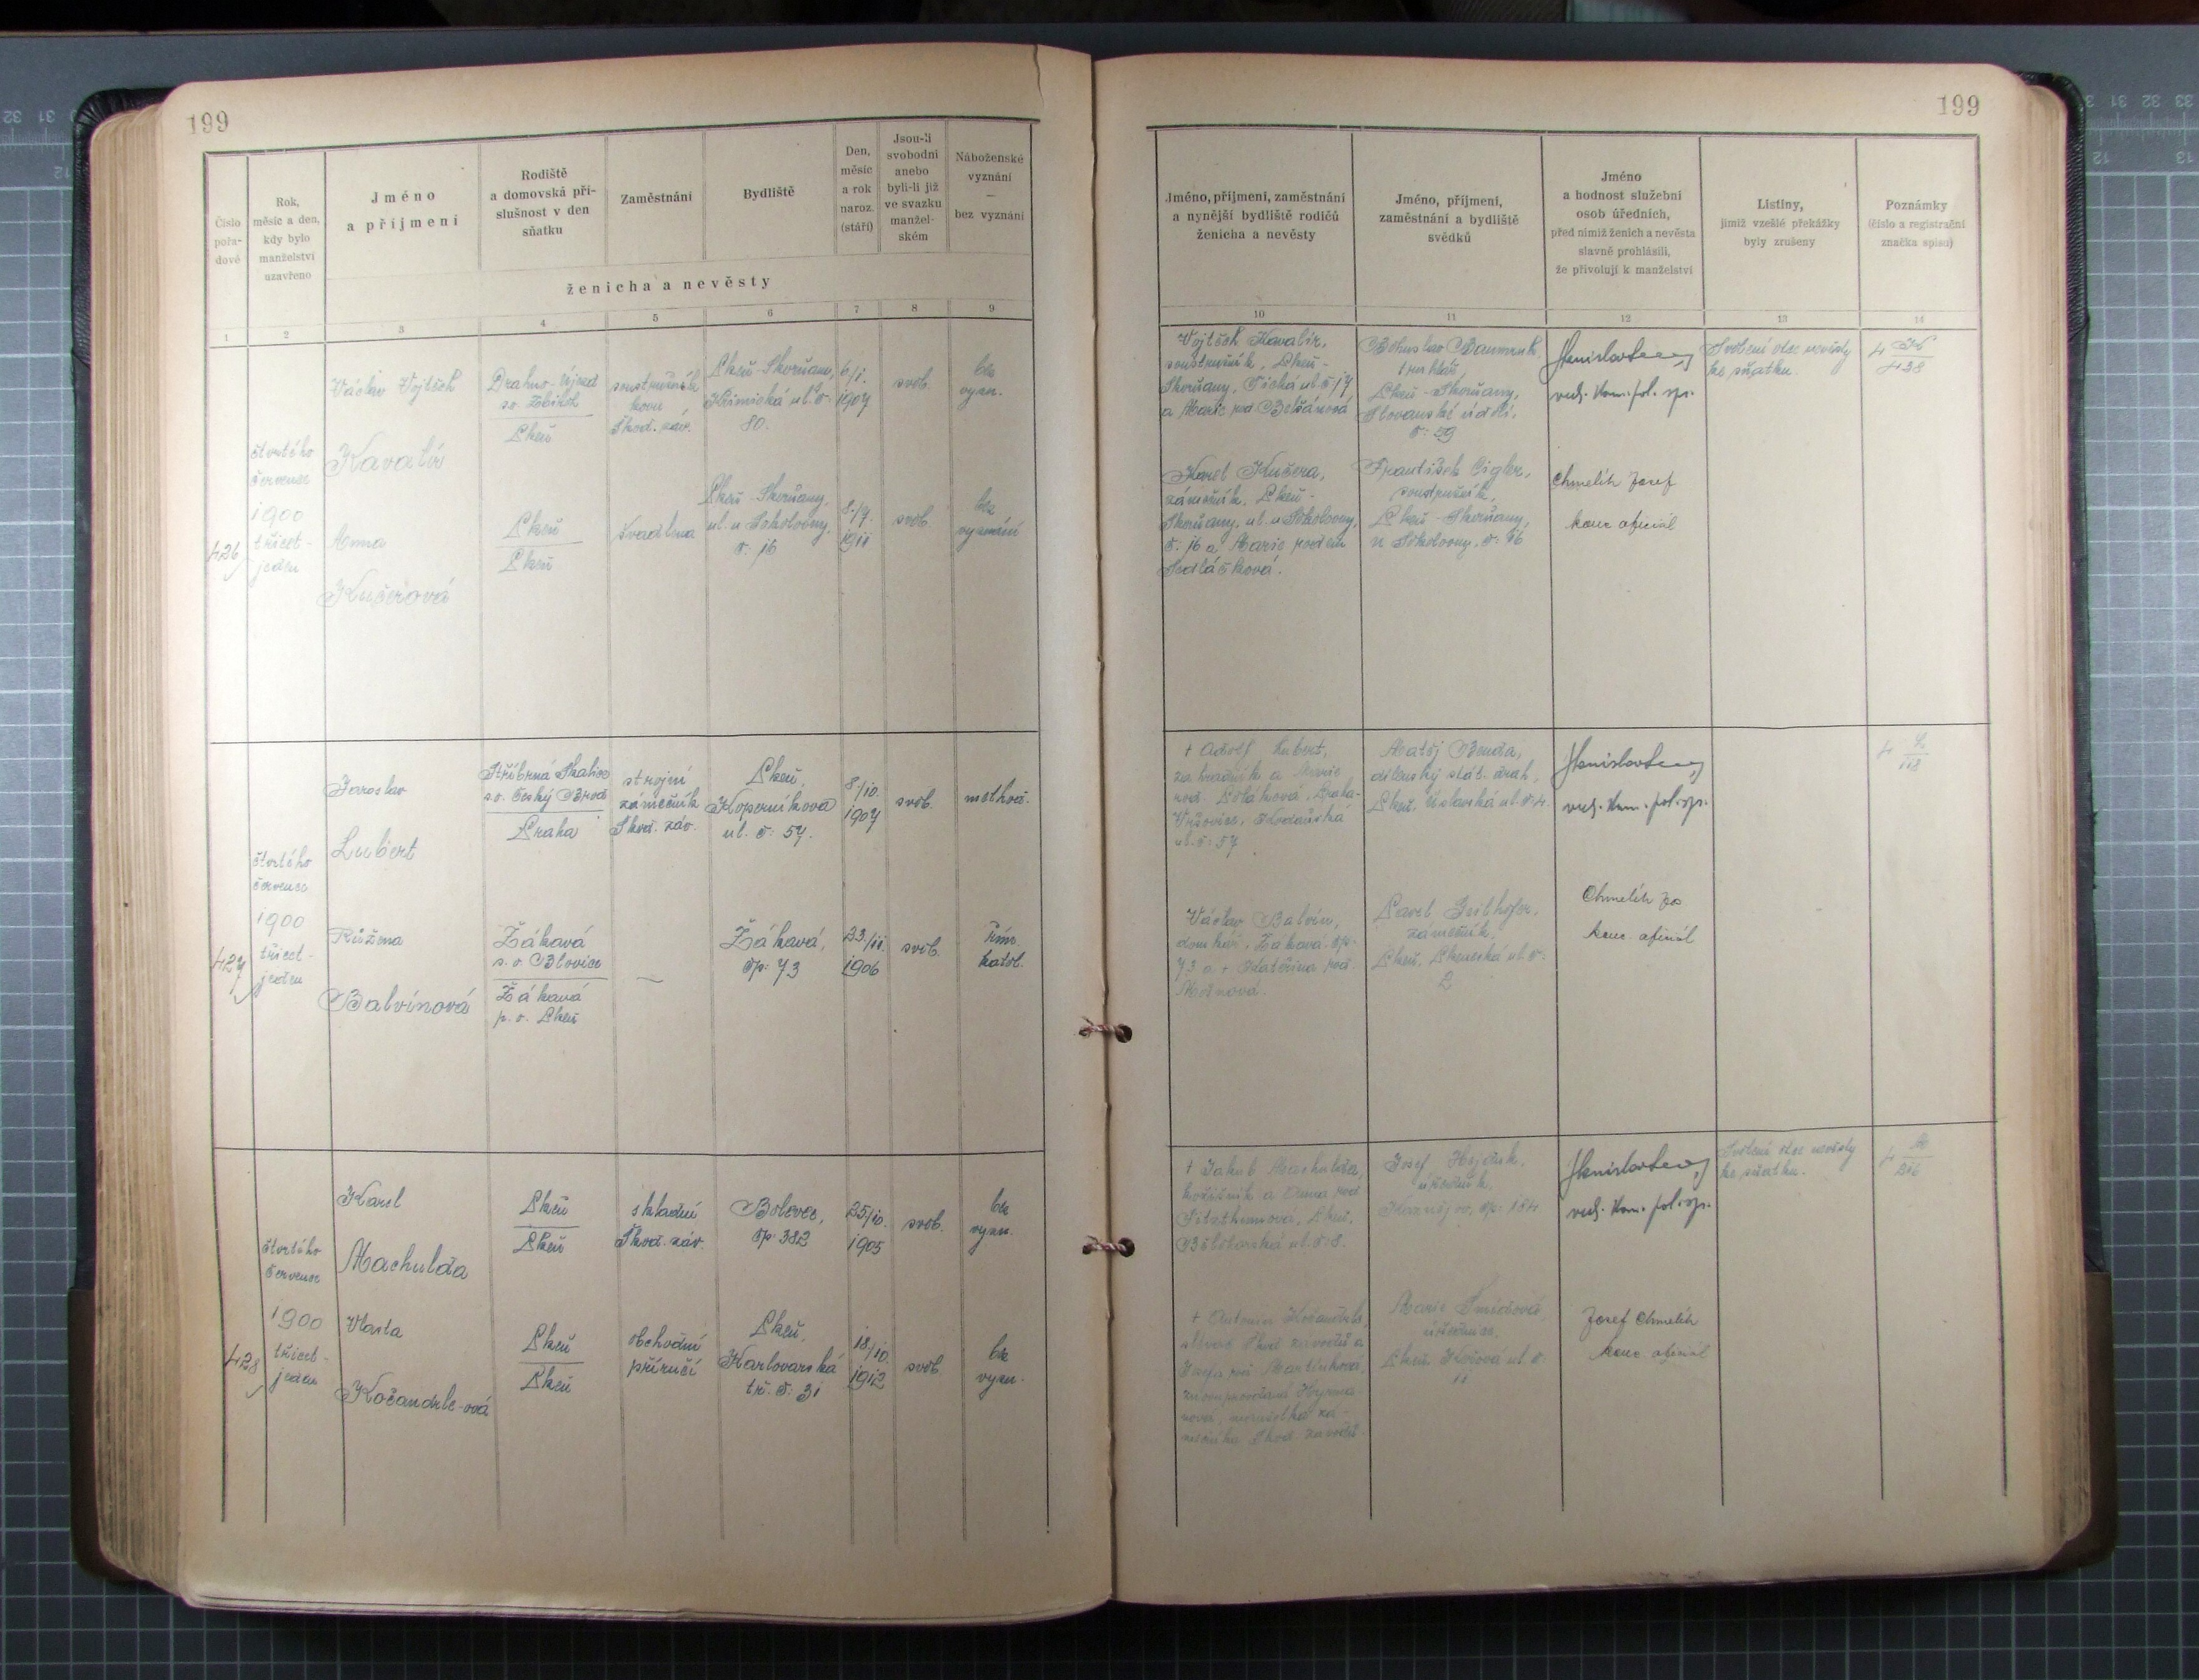 199
199
Číslo pořadové
Rok, měsíc a den, kdy bylo manželství uzavřeno
Jméno a příjmení
Rodiště a domovská příslušnost v den sňatku
Zaměstnání
Bydliště
Den, měsíc a rok naroz. (stáří)
Jsou-li svobodni anebo byli-li již ve svazku manželském
Náboženské vyznání — bez vyznání
ženicha a nevěsty
Jméno, příjmení, zaměstnání a nynější bydliště rodičů ženicha a nevěsty
Jméno, příjmení, zaměstnání a bydliště svědků
Jméno a hodnost služební osob úředních, před nimiž ženich a nevěsta slavně prohlásili, že přivolují k manželství
Listiny, jimiž vzešlé překážky byly zrušeny
Poznámky (číslo a registrační značka spisu)
1 2 3 4 5 6 7 8 9 10 11 12 13 14
426
čtvrtého
července
1900
třicet-
jeden
Václav Vojtěch
Kavalír
Drahno-Újezd
so. Zbiroh
Plzeň
soustružník
kovu
Škod. záv.
Plzeň-Skvrňany,
ul. č.
80.
6/1.
1907
svob.
bez
vyzn.
Anna
Kučerová
Plzeň
Plzeň
švadlena
Plzeň-Skvrňany,
ul. u Sokolovny,
č: 16
8./7.
1911
svob.
bez
vyznání
Vojtěch Kavalír,
soustružník, Plzeň-
Skvrňany, Tichá ul. č 17
a Marie rod
Karel Kučera,
zámečník, Plzeň-
Skvrňany, ul. u Sokolovny,
č: 16 a Marie rozená
Sedláčková.
Bohuslav
truhlář,
Plzeň-Skvrňany,
Slovanské údolí,
č: 59
František Cigler,
soustružník,
Plzeň-Skvrňany,
u Sokolovny, č: 16
rad. kom. pol. sp.
Chmelík Josef
kanc. oficiál
Svolení otce nevěsty
ke sňatku.
4
438
427
čtvrtého
července
1900
třicet-
jeden
Jaroslav
Lubert
Stříbrná Skalice
so. Český Brod
Praha
strojní
zámečník
Škod. záv.
Plzeň,
Koperníkova
ul. č: 57.
8/10.
1907
svob.
Růžena
Balvínová
Žákavá
s. o. Blovice
Žákavá
p. o. Plzeň
—
Žákavá,
čp: 73
23/11
1906
svob.
řím.
katol.
† Adolf Lubert,
zahradník a Marie
rod. Praha-
Vršovice, Kodaňská
ul. č: 57
Václav Balvín,
domkář, Žákavá čp:
73 a † Kateřina roz.
Matěj Benda,
dílenský stát. drah,
Plzeň, Úslavská ul. č 4.
Pavel
zámečník,
Plzeň, Plzeňská ul. č:
2
rad. kom. pol. sp.
Chmelík Jos
kanc. oficiál
428
čtvrtého
července
1900
třicet-
jeden
Karel
Machulda
Plzeň
Plzeň
skladní
Škod. záv.
Bolevec,
čp: 382
25/10.
1905
svob.
bez
vyzn.
Vlasta
Kočandrle-ová
Plzeň
Plzeň
obchodní
příručí
Plzeň,
Karlovarská
tř. č: 31
18/10.
1912
svob
bez
vyzn.
† Jakub Machulda,
kožišník a Anna roz
Plzeň,
ul. č: 8.
† Antonín Kočandrle,
Škod. závodů a
Josefa roz Martínková,
znovuprovdaná
Škod. závodů
Josef Hejduk,
úředník,
čp: 184
Marie
úřednice,
Plzeň ul. č:
11
rad. kom. pol. sp.
Josef Chmelík
kanc. oficiál
Svolení otce nevěsty
ke sňatku.
4